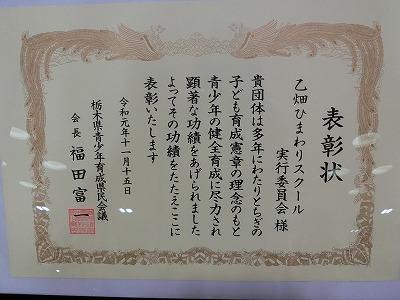 表彰状
乙畑ひまわりスクール
実行委員会 様
貴団体は多年にわたりとちぎの
子ども育成憲章の理念のもと
青少年の健全育成に尽力され
顕著な功績をあげられました
よってその功績をたたえここに
表彰いたします
令和元年十一月十五日
栃木県青少年育成県民会議
会長 福田富一